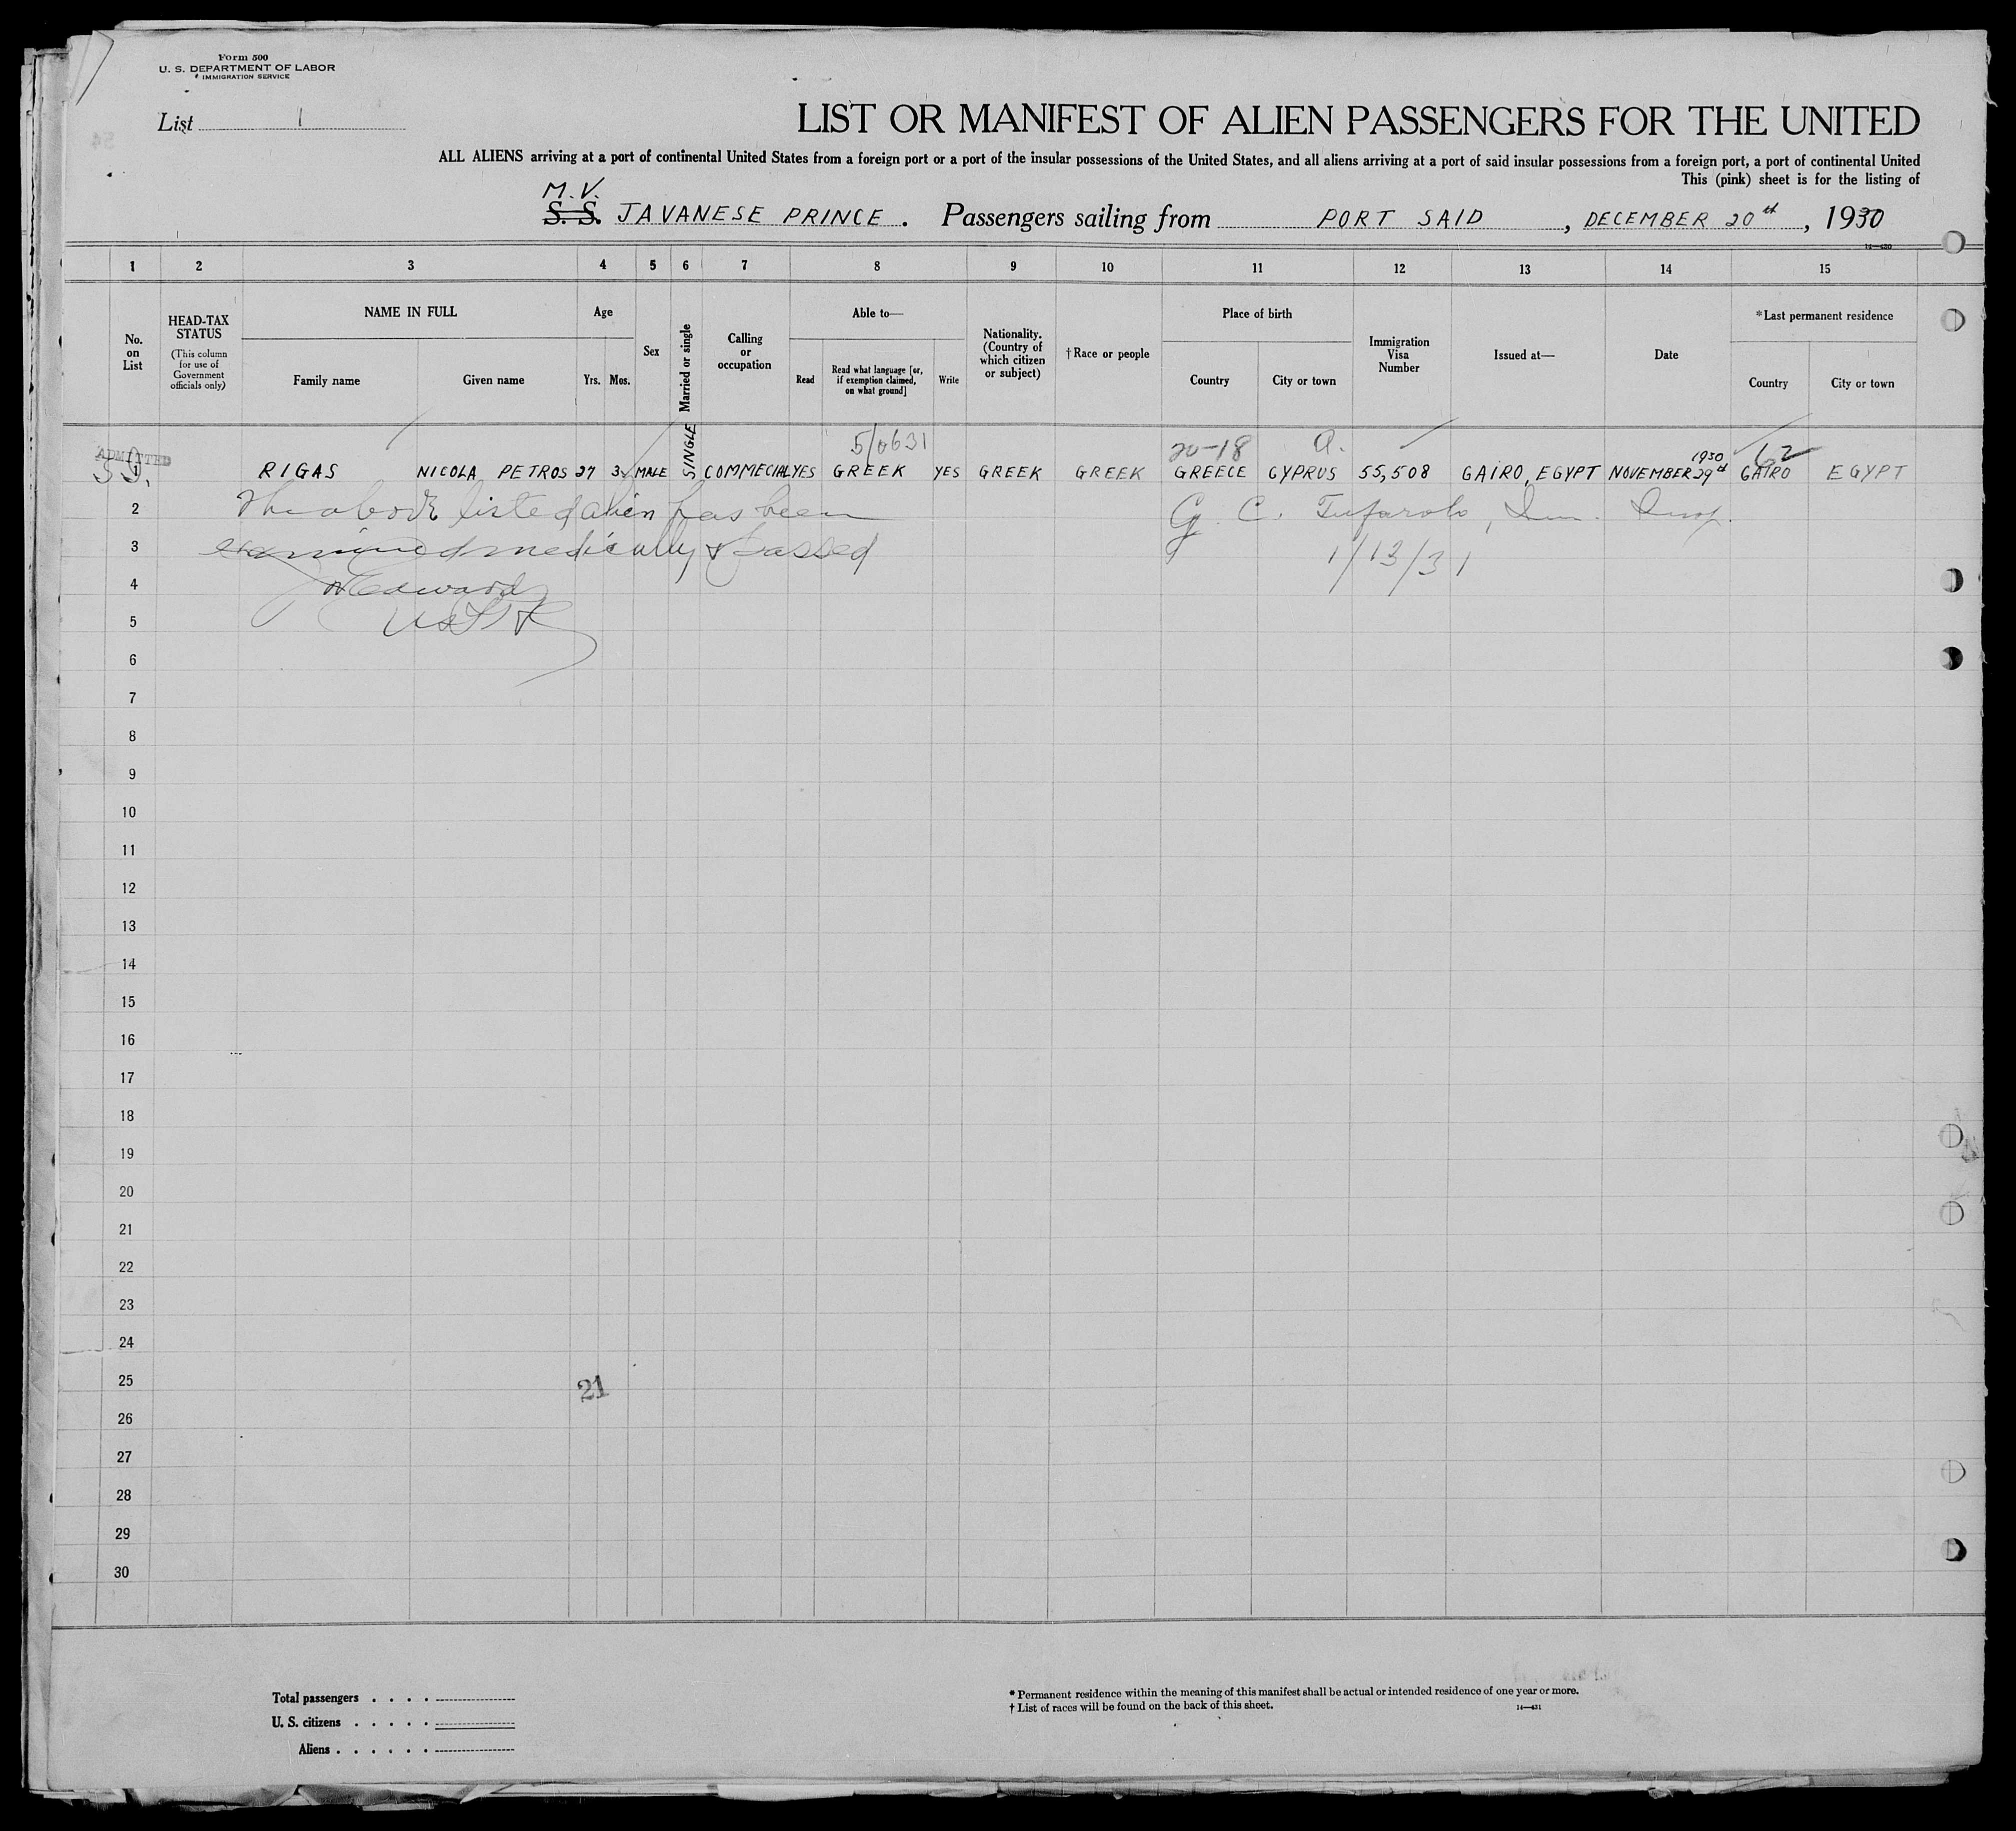 Form 500
U. S. DEPARTMENT OF LABOR
IMMIGRATION SERVICE
List 1
LIST OR MANIFEST OF ALIEN PASSENGERS FOR THE UNITED
ALL ALIENS arriving at a port of continental United States from a foreign port or a port of the insular possessions of the United States, and all aliens arriving at a port of said insular possessions from a foreign port, a port of continental United
This (pink) sheet is for the listing of
M. V.
S. S. JAVANESE PRINCE. Passengers sailing from PORT SAID, DECEMBER 20th, 1930
14—430
1 2 3 4 5 6 7 8 9 10 11 12 13 14 15
No. on List
HEAD-TAX STATUS
(This column for use of Government officials only)
NAME IN FULL
Family name
Given name
Age
Yrs. Mos.
Sex
Married or single
Calling or occupation
Able to—
Read
Read what language [or, if exemption claimed, on what ground]
Write
Nationality. (Country of which citizen or subject)
†Race or people
Place of birth
Country
City or town
Immigration Visa Number
Issued at—
Date
*Last permanent residence
Country
City or town
5/0631 20-18 a. 62
ADMITTED
1 RIGAS NICOLA PETROS 27 3 MALE SINGLE COMMECIAL YES GREEK YES GREEK GREEK GREECE CYPRUS 55,508 CAIRO, EGYPT NOVEMBER 29th 1930 CAIRO EGYPT
2 The above listed alien has been G. C. Tufarolo, Im. Insp.
3 examined medically & passed 1/13/31
4 Edwards
5
6
7
8
9
10
11
12
13
14
15
16
17
18
19
20
21
22
23
24
25 21
26
27
28
29
30
Total passengers . . . .
U. S. citizens . . . . .
Aliens . . . . . .
* Permanent residence within the meaning of this manifest shall be actual or intended residence of one year or more.
† List of races will be found on the back of this sheet.
14—431